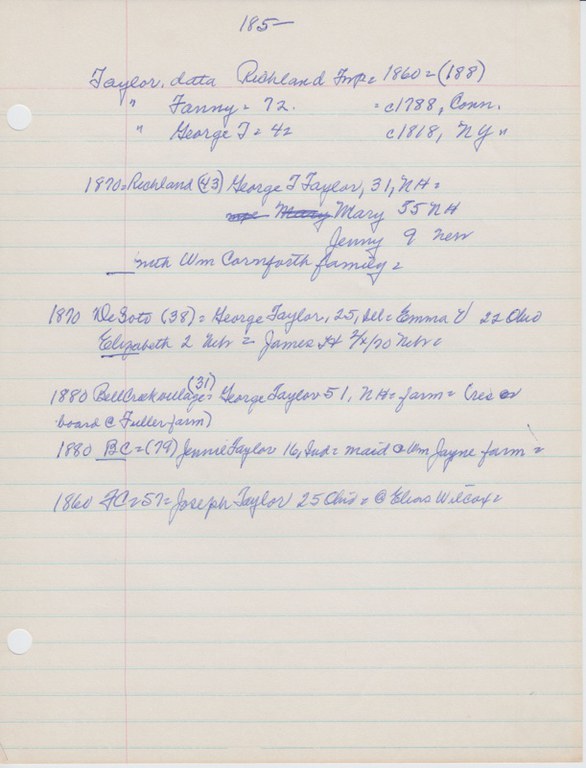 185-
Taylor, data Richland Twp = 1860 = (188)
" Fanny = 72. = c1788, Conn.
" George T = 42 c1818, NY "
1870 = Richland (43) George T Taylor, 31, NH =
Mary Mary 35 NH
Jenny 9 Nebr
with Wm Cornforth family =
1870 DeSoto (38) = George Taylor, 25, Del = Emma V 22 Ohio
Elizabeth 2 Nebr = James H 2/12/70 Nebr =
1880 Bell Creek village (31) = George Taylor 51, NH = farm = (res or
board @ Fuller farm)
1880 BC = (79) Jennie Taylor 16, Ind = maid @ Wm Jayne farm =
1860 FC = 57 = Joseph Taylor 25 Ohio = @ Elias Wilcox =